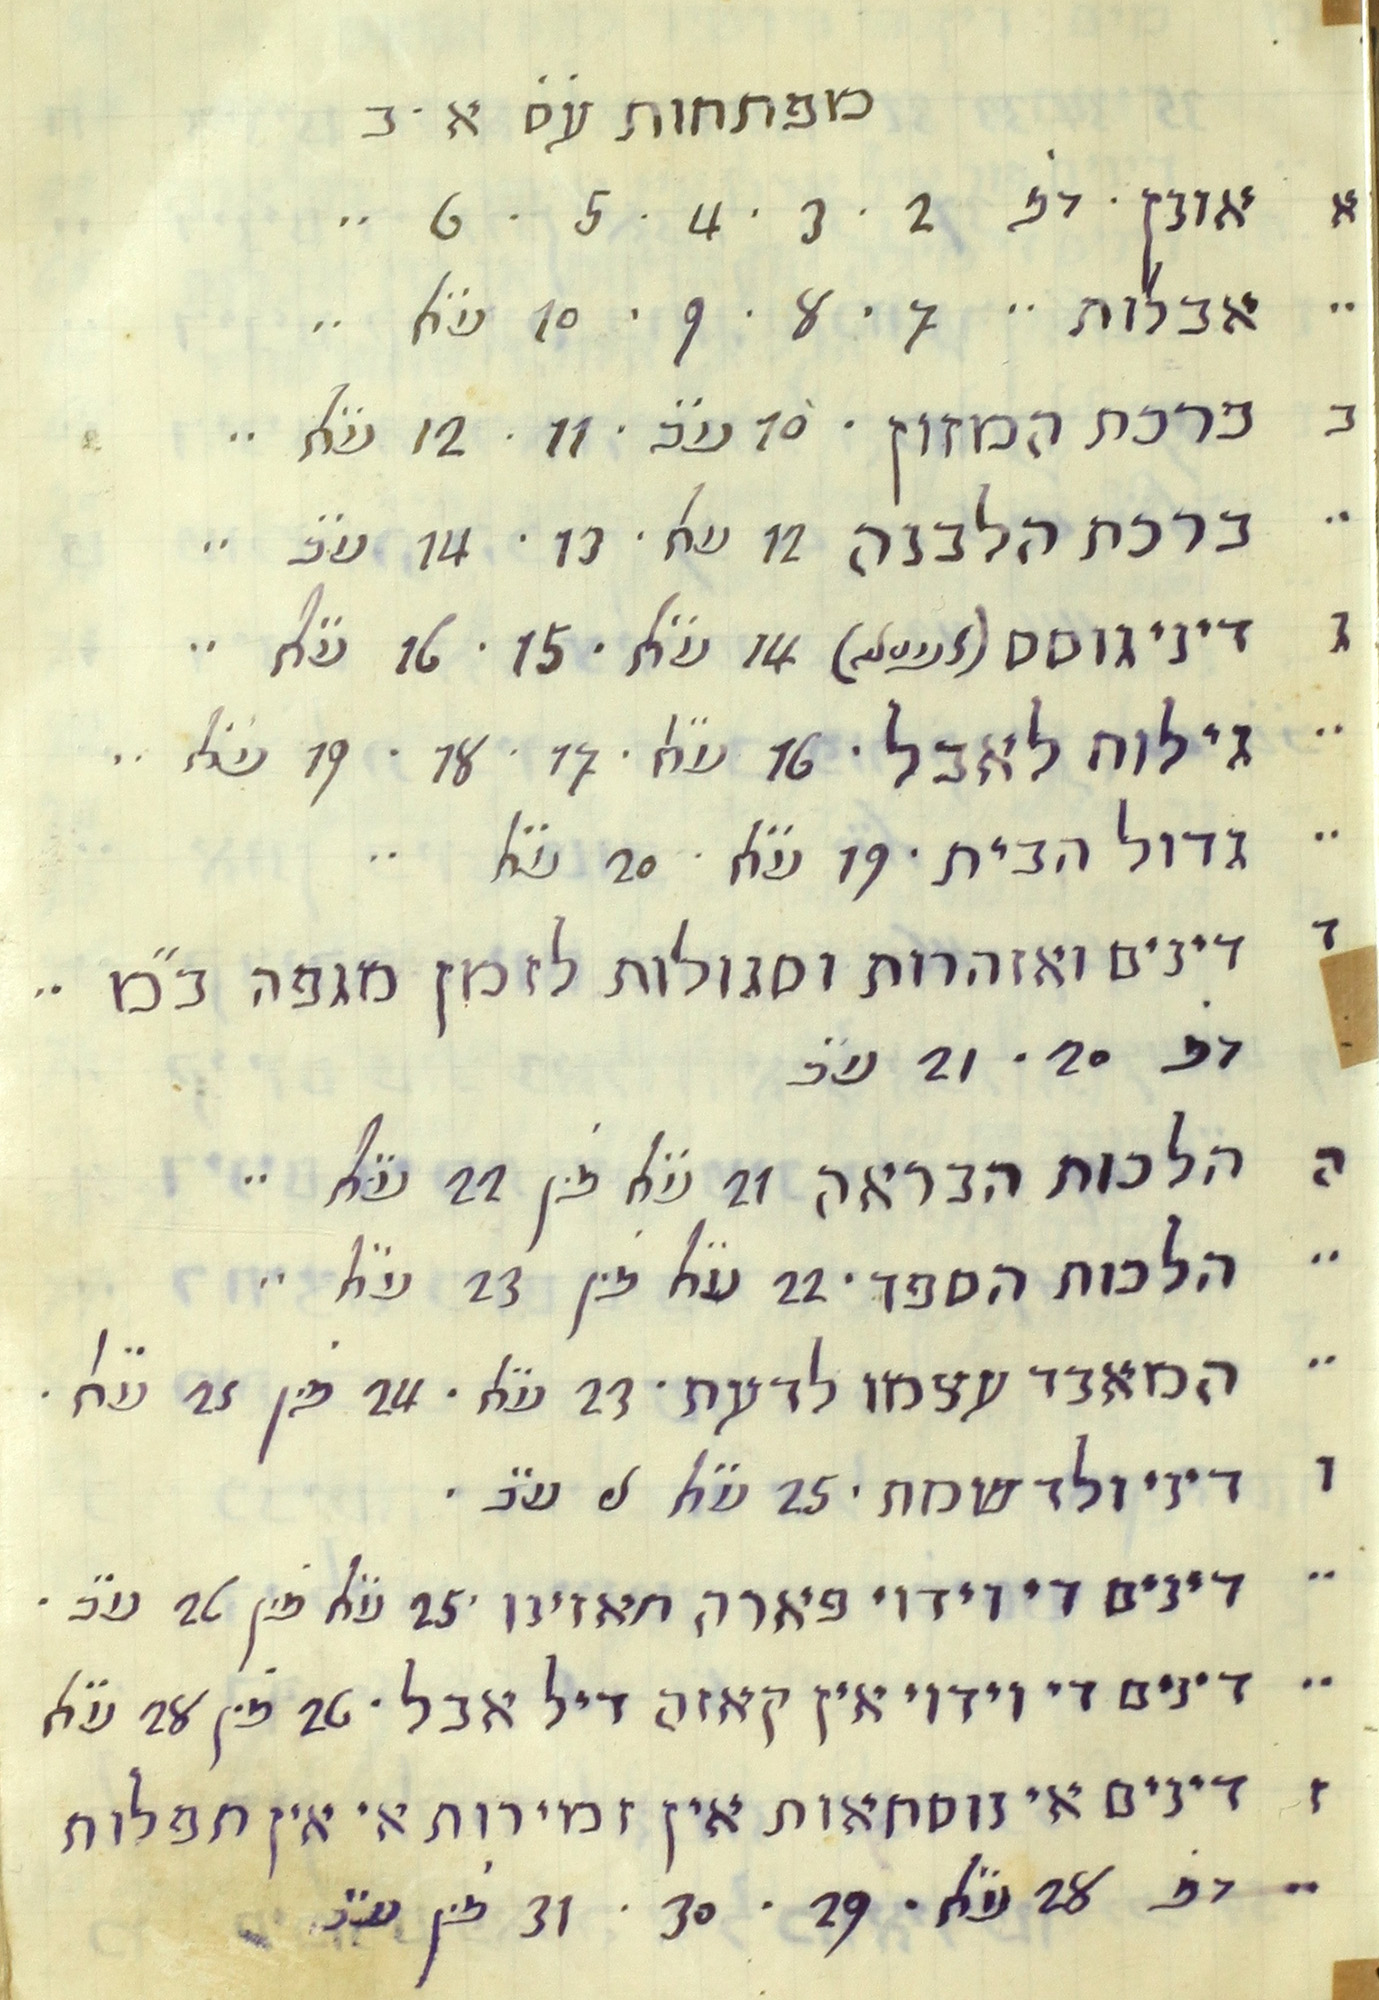 מפתחות ע׳פ א · ב
א אונן · דפ׳ 2 · 3 · 4 · 5 · 6 ..
.. אבלות .. 7 · 8 · 9 · 10 ע״א ..
ב ברכת המזון · 10 ע״ב · 11 · 12 ע״א ..
.. ברכת הלבנה 12 עא · 13 · 14 ע״ב ..
ג דיני גוסס 14 ע״א · 15 · 16 ע״א ..
.. גילוח לאבל · 16 ע״א · 17 · 18 · 19 ע״א ..
.. גדול הבית · 19 ע״א · 20 ע״א ..
ד דינים ואזהרות וסגולות לזמן מגפה ב״מ ..
דפ׳ 20 · 21 ע״ב
ה הלכות הבראה 21 ע״א 22 ע״א ..
.. הלכות הספד · 22 ע״א 23 ע״א ..
.. המאבד עצמו לדעת · 23 ע״א · 24 25 ע״א ·
ו דיני ולד שמת · 25 ע״א ע״ב ·
.. דינים די וידוי פארה חאזינו · 25 ע״א 26 ע״ב ·
.. דינים די וידוי אין קאזה דיל אבל · 26 28 ע״א
ז דינים אי נוסחאות אין זמירות אי אין תפלות
.. דפ׳ 28 ע״א · 29 · 30 · 31 ע״ב